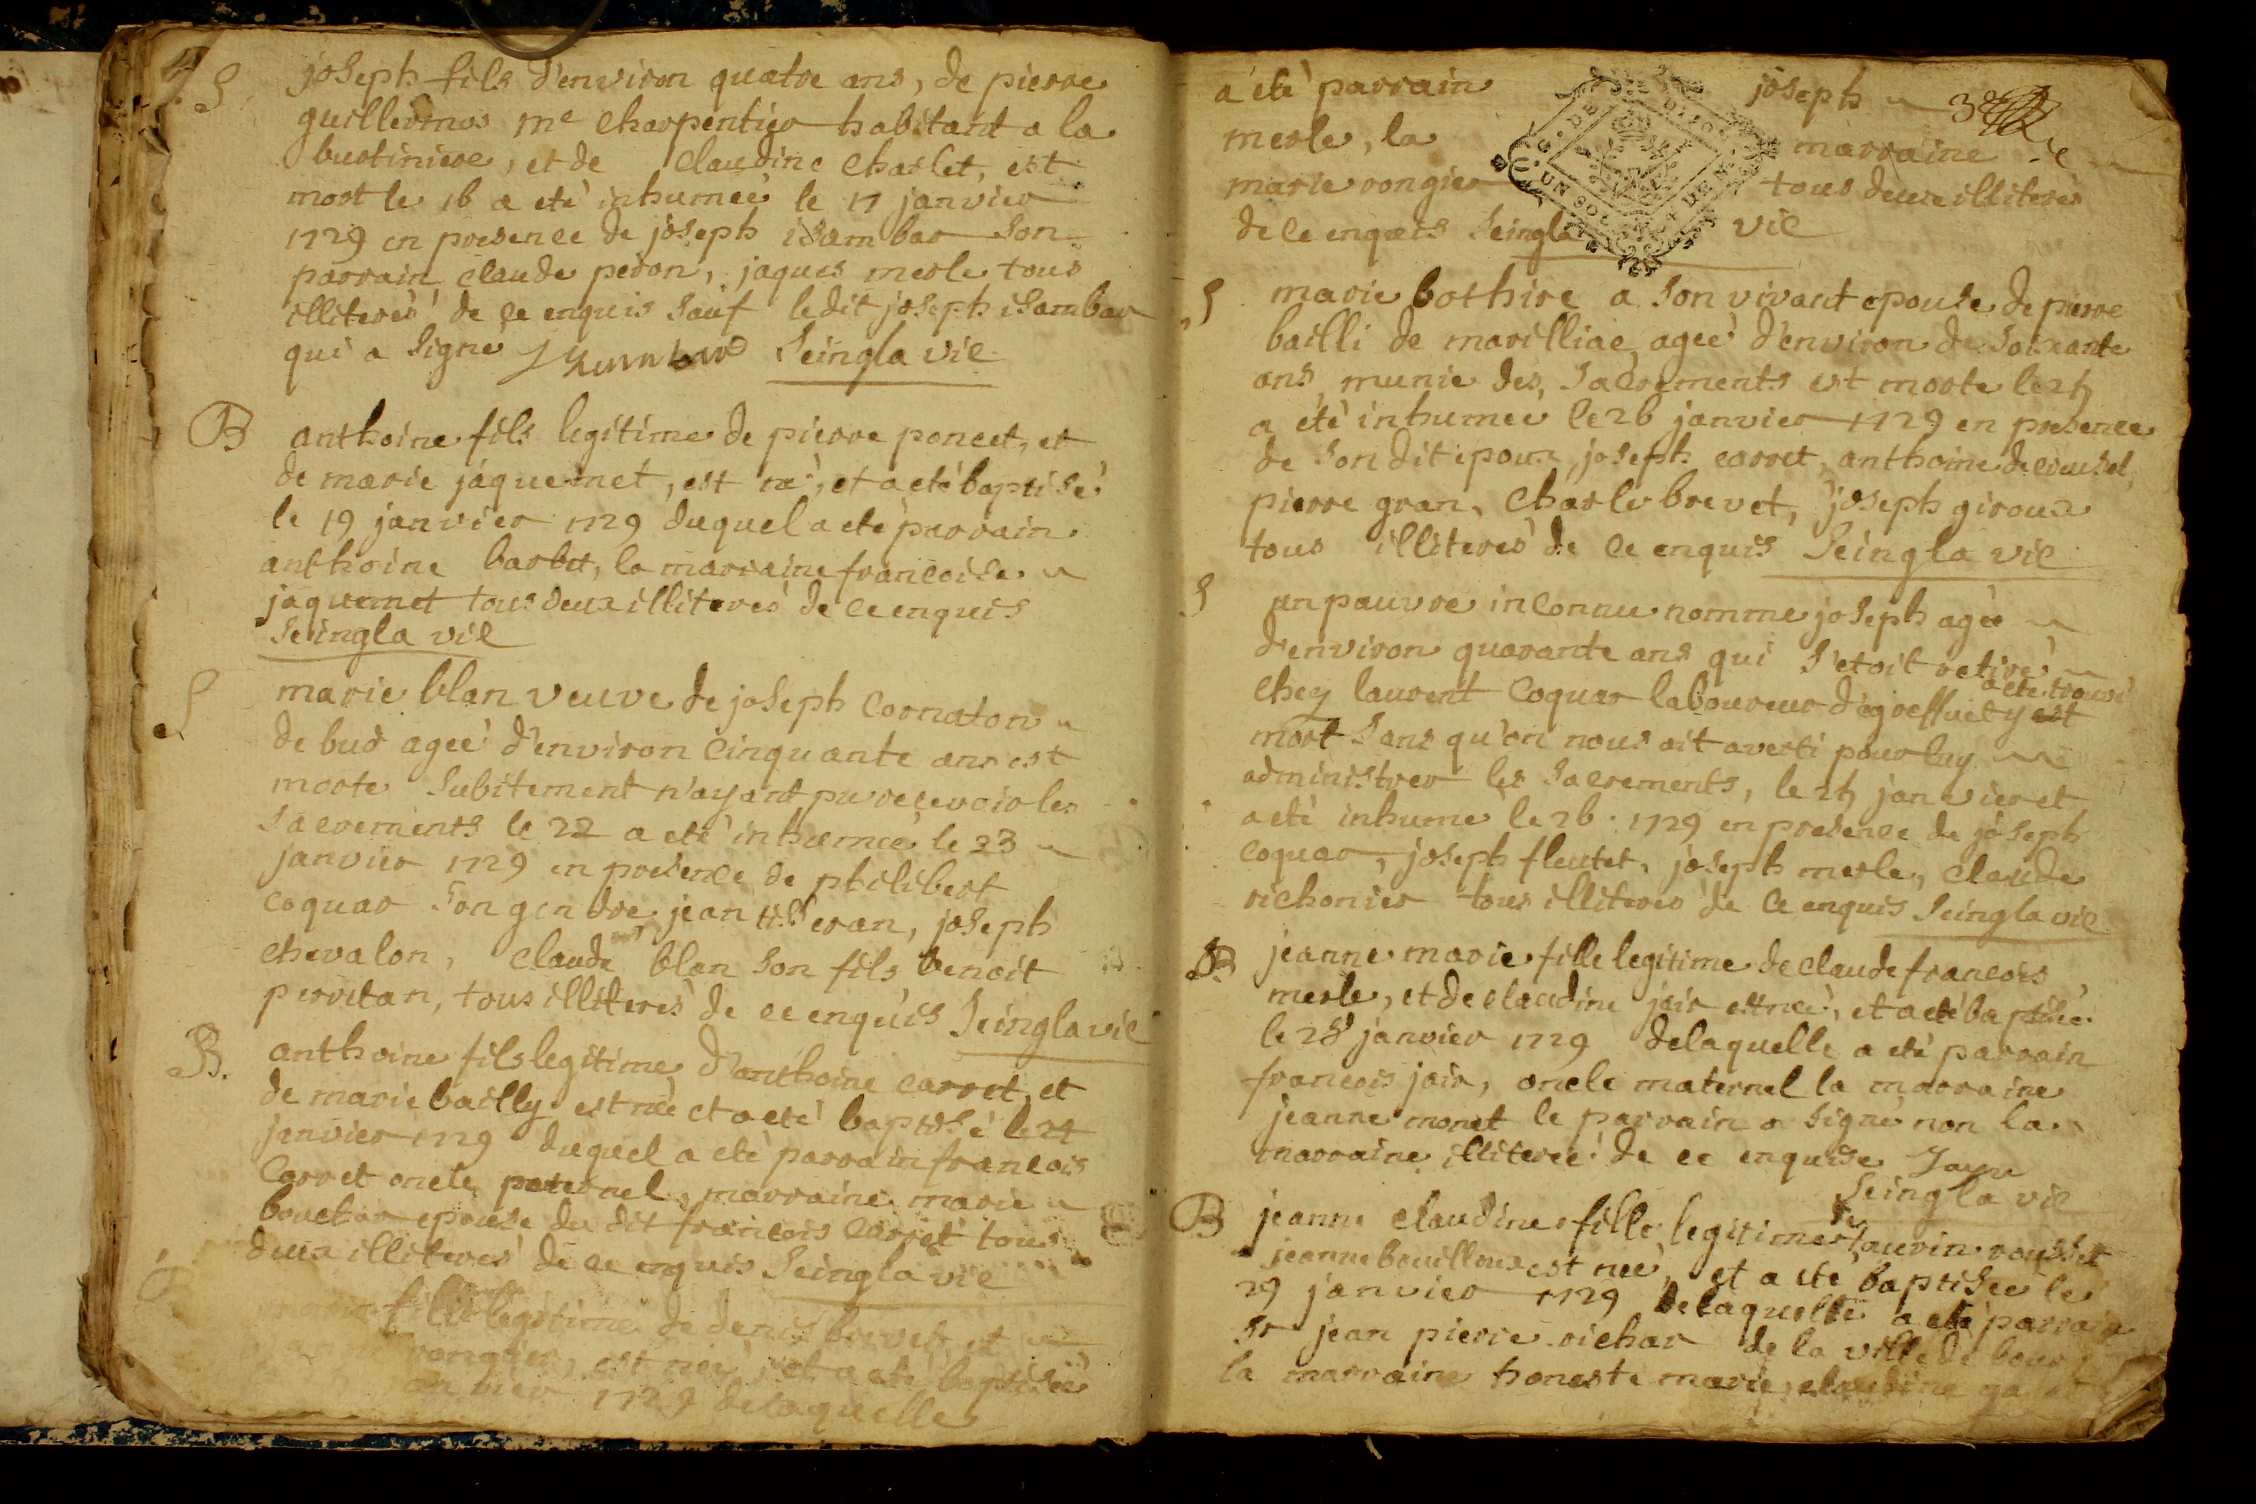 S joseph fils d'environ quatre ans, de pierre
guillermos me charpentier habitant a la
burtiniere, et de claudine charlet, est
mort le 16 a eté inhumeé le 17 janvier
1729 en presence de joseph isambar son
parrain claude peron, jaques merle tous
illiterés de ce enquis sauf ledit joseph isambar
qui a signé Seingla vic
B anthoine fils legitime de pierre poncet, et
de marie jaquemet, est né, et a eté baptisé
le 19 janvier 1729 duquel a eté parrain
anthoine barbet, la marraine francoise
jaquemet tous deux illiterés de ce enquis
Seingla vic
S marie blan veuve de joseph cornaton
de bud ageé d'environ cinquante ans est
morte subitement n'ayant pu recevoir les
sacrements le 22 a eté inhumeé le 23
janvier 1729 en presence de philibert
coquar son gendre, jean seran, joseph
chevalon, claude blan son fils, benoit
pervitan, tous illiterés de ce enquis Seingla vic
B. anthoine fils legitime d'anthoine carret, et
de marie bailly est né et a eté baptisé le 24
janvier 1729 duquel a eté parrain francois
Carret oncle paternel, marraine marie
bouchar epouse du dit francois carret tous
deux illiterés de ce enquis Seingla vic
fille legitime de denis brevet, et
rongier, est neé, et a eté baptiseé
1729 delaquelle
a eté parrain joseph
merle, la marraine
marie rongier tous deux illiterés
de ce enquis Seingla vic
UN SOL
S marie bothire a son vivant epouse de pierre
bailli de marilliac ageé d'environ de soixante
ans, munie des sacrements est morte le 25
a eté inhumeé le 26 janvier 1729 en presence
de son dit epoux, joseph carret, anthoine decreusel,
pierre gran, charle brevet, joseph giroux
tous illiterés de ce enquis Seingla vic
S un pauvre inconnu nomme joseph agé
d'environ quarante ans qui s'etoit retiré
a eté trouvé
chez laurent coquar laboureur d'egreffuet y est
mort sans qu'on nous ait averti pour luy
administrer les sacrements, le 25 janvier et
a eté inhumé le 26 1729 en presence de joseph
coquar, joseph fleutet, joseph merle, claude
richonier tous illiterés de ce enquis Seingla vic
B jeanne marie fille legitime de claude francois
merle, et de claudine jair est neé, et a eté baptiseé
le 28 janvier 1729 delaquelle a eté parrain
francois jair, oncle maternel la marraine
jeanne monet le parrain a signé non la
marraine illitereé de ce enquise Jayr
Seingla vic
B jeanne claudine fille legitime de taurin rousset
jeanne bouilloux est neé, et a eté baptiseé le
29 janvier 1729 delaquelle a eté parrain
sr jean pierre richar de la ville de bourg
la marraine honeste marie claudine